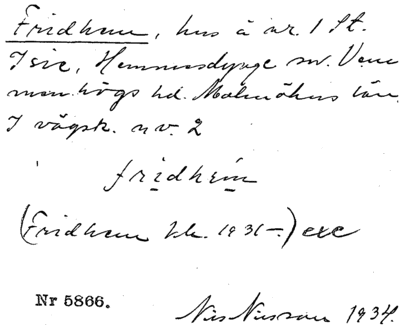 Fridhem, hus å nr. 1 St.
Isie, Hemmesdynge sn. Vem
menhögs hd. Malmöhus län.
I vägsk. nv. 2
fridhem
(Fridhem kk. 1931-) exc
Nr 5866.
Nils Nilsson 1934.